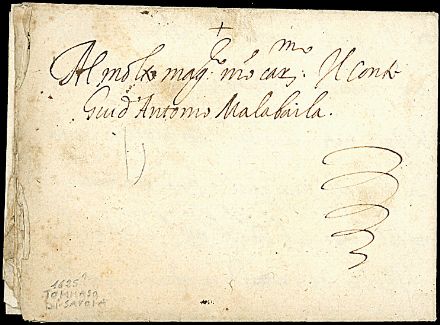 +
Al molto mag.co mio car.mo Il Conte
Guid'Antonio Malabaila.
1625
TOMMASO
DI SAVOIA